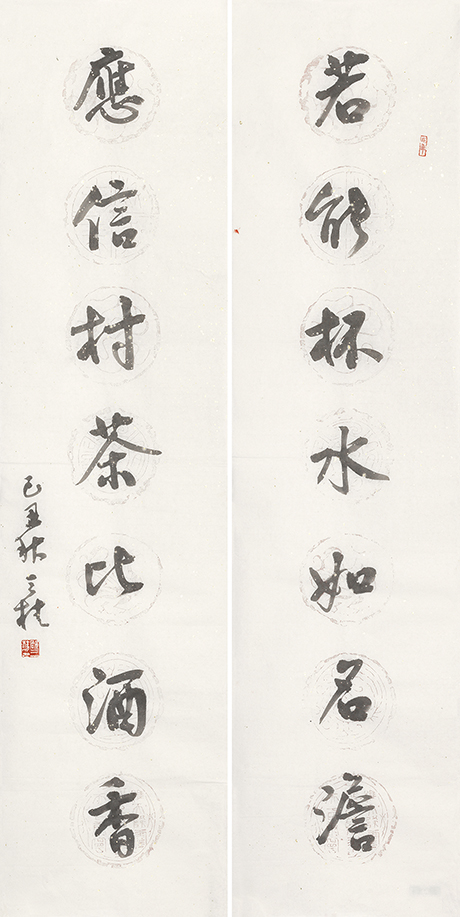 若能杯水如名澹
應信村茶比酒香
己丑秋